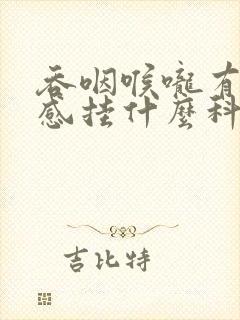 吞咽喉嚨有
感挂什麼科
吉比特